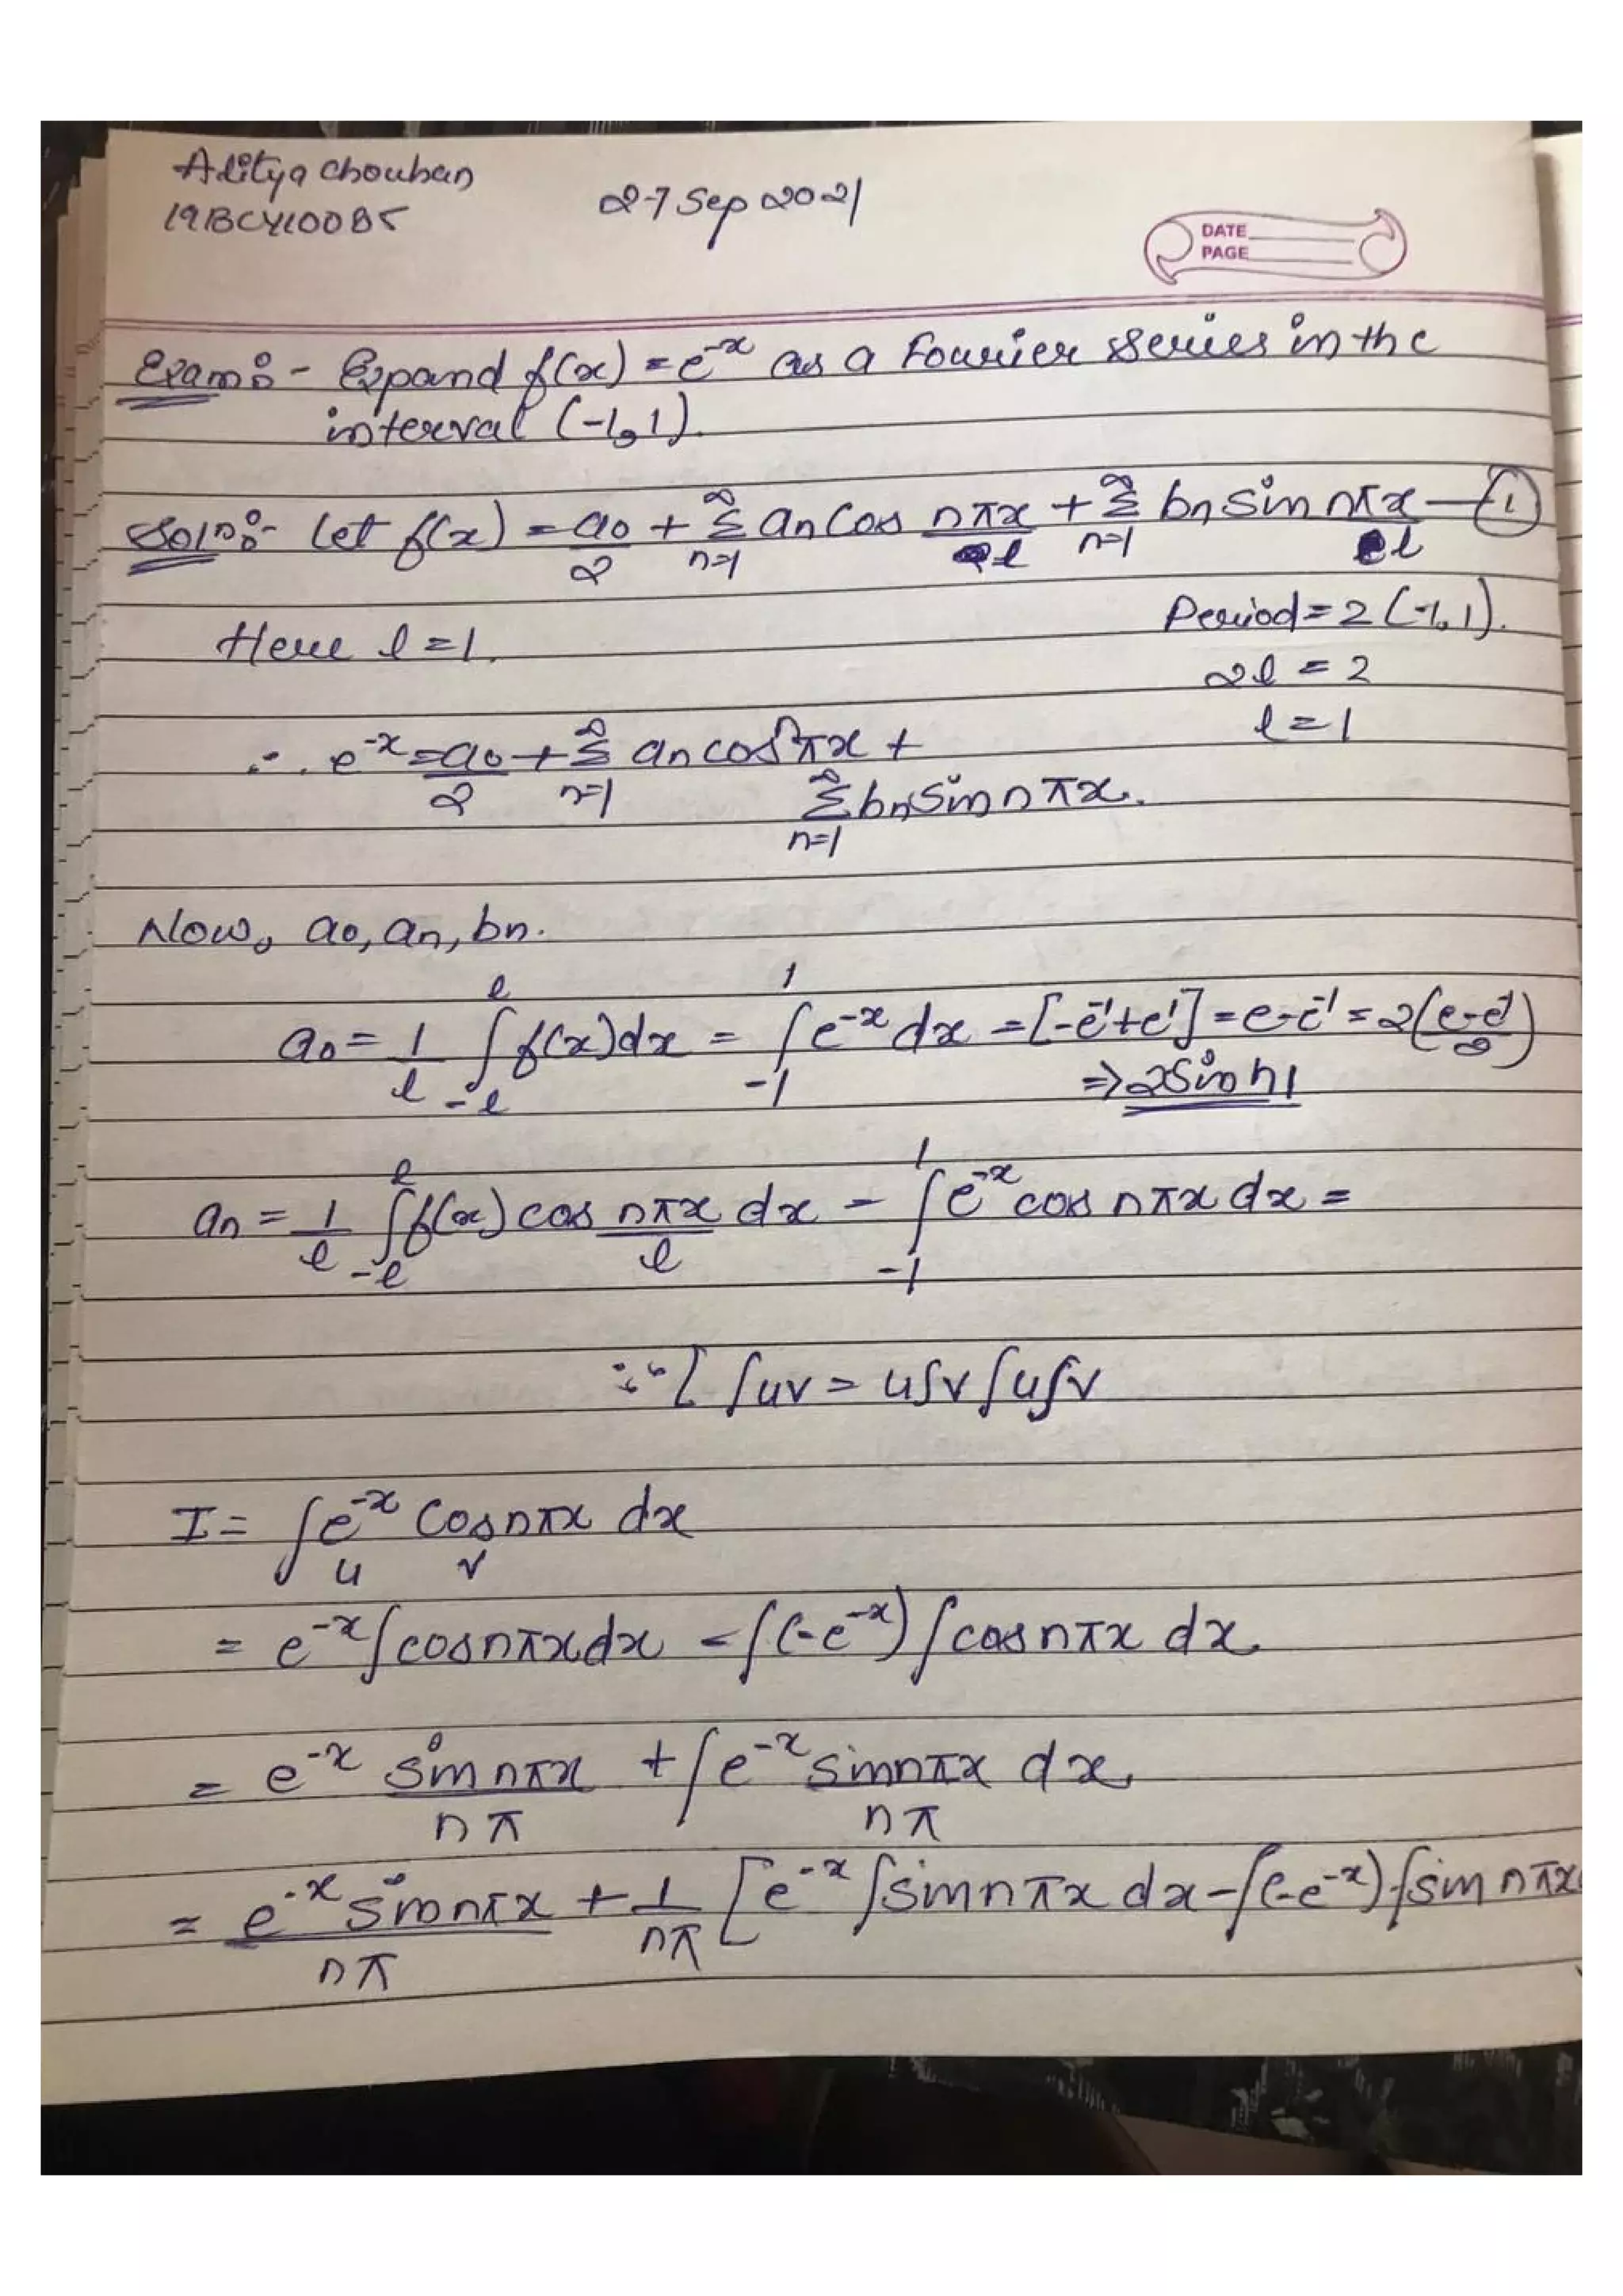 Aditya Chouhan
27 Sep 2021
19BCY10085
DATE
PAGE
Exam:- Expand f(x) = e^-x as a Fourier series in the
interval (-1,1).
Soln:- Let f(x) = a0/2 + ∞Σn=1 an cos nπx/l + ∞Σn=1 bn sin nπx/l — ①
Here l = 1.
Period = 2 (-1,1).
2l = 2
l = 1
∴ e^-x = a0/2 + ∞Σn=1 an cos nπx +
∞Σn=1 bn sin nπx.
Now, a0, an, bn.
a0 = 1/l ∫_-l^l f(x) dx = ∫_-1^1 e^-x dx = [-e^-1 + e^1] = e - e^-1 = 2(e-e^-1/2)
⇒ 2 sin h1
an = 1/l ∫_-l^l f(x) cos nπx/l dx = ∫_-1^1 e^-x cos nπx dx =
∵ [ ∫uv = u∫v ∫u∫v
I = ∫ e^-x cos nπx dx
u v
= e^-x ∫cos nπx dx - ∫(-e^-x) ∫cos nπx dx.
= e^-x sin nπx/nπ + ∫ e^-x sin nπx/nπ dx.
= e^-x sin nπx/nπ + 1/nπ [ e^-x ∫sin nπx dx - ∫(-e^-x) ∫sin nπx